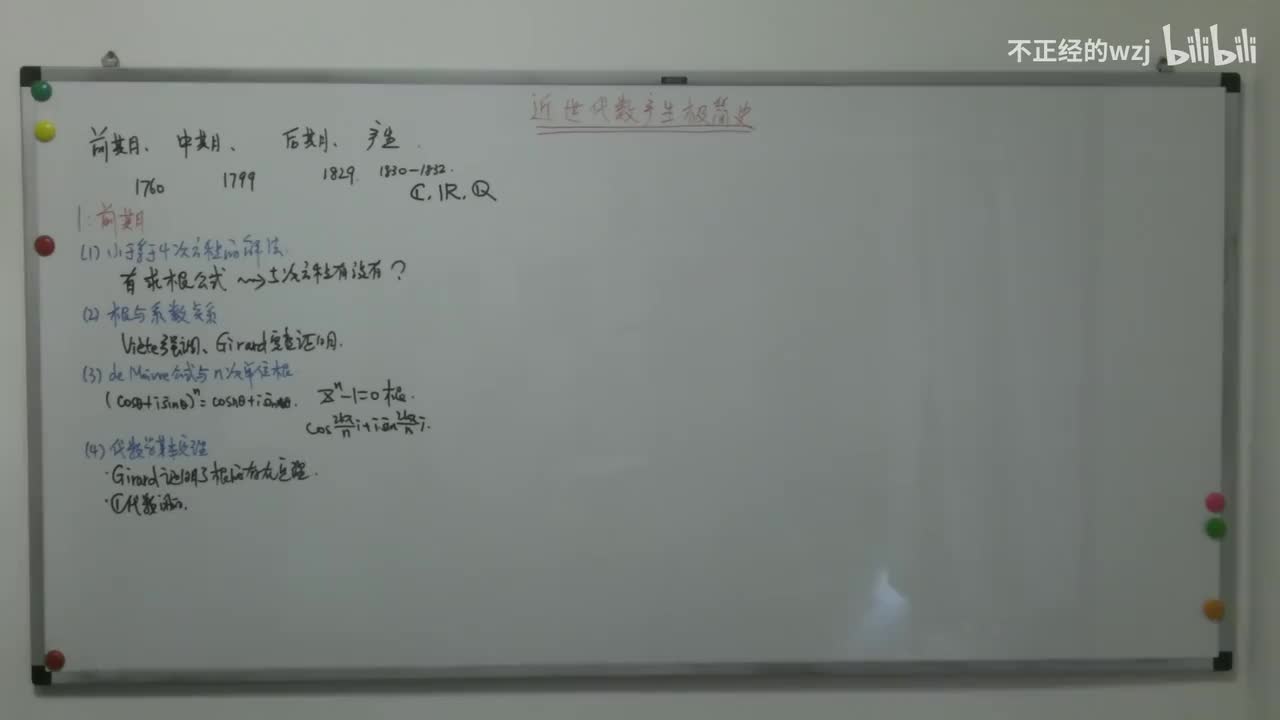 不正经的wzj bilibili
近世代数产生极简史
前期、中期、后期、产生.
1760 1799 1829. 1830-1832.
ℂ, ℝ, ℚ
1:前期
(1) 小于等于4次方程的解法.
有求根公式 ⇝ 5次方程有没有?
(2) 根与系数关系
Viète强调、Girard完整证明.
(3) de Moivre公式与n次单位根
(cosθ+isinθ)ⁿ=cosnθ+isinnθ. xⁿ-1=0根.
cos 2kπ/n i+i sin 2kπ/n i.
(4) 代数学基本定理
·Girard证明了根的存在定理.
·ℂ代数闭的.